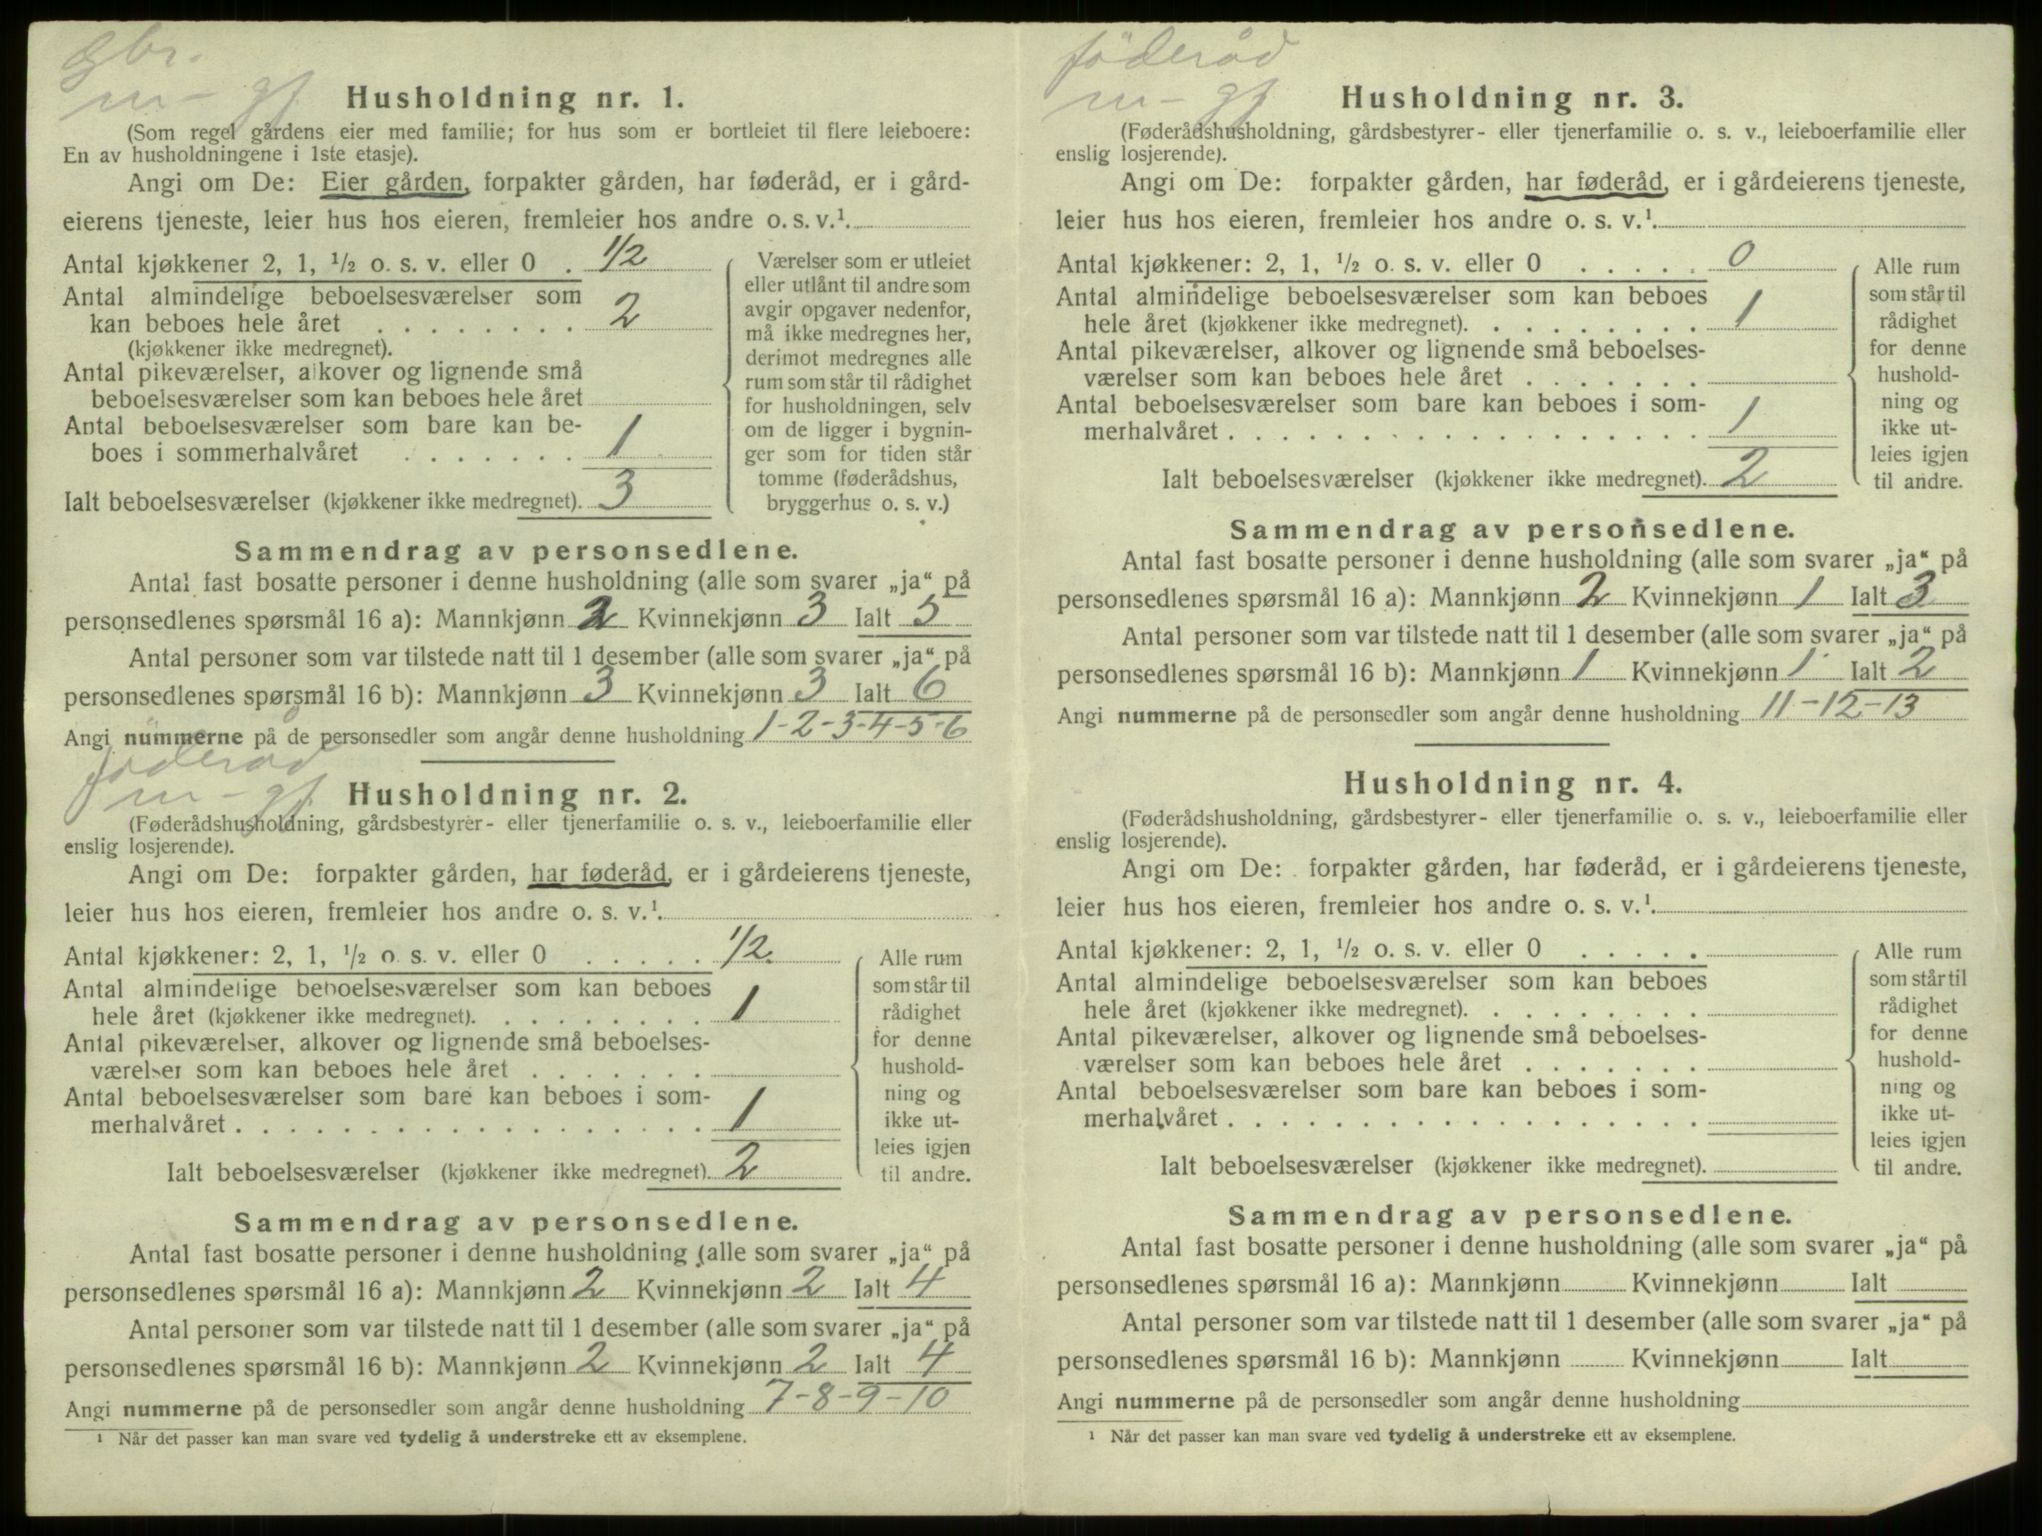 Gbr.
m - gf
Husholdning nr. 1.
(Som regel gårdens eier med familie; for hus som er bortleiet til flere leieboere:
En av husholdningene i 1ste etasje).
Angi om De: Eier gården, forpakter gården, har føderåd, er i gård-
eierens tjeneste, leier hus hos eieren, fremleier hos andre o. s. v.¹.
Antal kjøkkener 2, 1, ½ o. s. v. eller 0 . 1/2
Antal almindelige beboelsesværelser som
kan beboes hele året . . . . . . . . 2
(kjøkkener ikke medregnet).
Antal pikeværelser, alkover og lignende små
beboelsesværelser som kan beboes hele året
Antal beboelsesværelser som bare kan be-
boes i sommerhalvåret . . . . . . . 1
Ialt beboelsesværelser (kjøkkener ikke medregnet). 3
Værelser som er utleiet
eller utlånt til andre som
avgir opgaver nedenfor,
må ikke medregnes her,
derimot medregnes alle
rum som står til rådighet
for husholdningen, selv
om de ligger i bygnin-
ger som for tiden står
tomme (føderådshus,
bryggerhus o. s. v.)
Sammendrag av personsedlene.
Antal fast bosatte personer i denne husholdning (alle som svarer „ja“ på
personsedlenes spørsmål 16 a): Mannkjønn 2 Kvinnekjønn 3 Ialt 5
Antal personer som var tilstede natt til 1 desember (alle som svarer „ja“ på
personsedlenes spørsmål 16 b): Mannkjønn 3 Kvinnekjønn 3 Ialt 6
Angi nummerne på de personsedler som angår denne husholdning 1-2-3-4-5-6
föderåd
m - gf
Husholdning nr. 2.
(Føderådshusholdning, gårdsbestyrer- eller tjenerfamilie o. s. v., leieboerfamilie eller
enslig losjerende).
Angi om De: forpakter gården, har føderåd, er i gårdeierens tjeneste,
leier hus hos eieren, fremleier hos andre o. s. v.¹.
Antal kjøkkener: 2, 1, ½ o. s. v. eller 0 . . . . . 1/2.
Antal almindelige beboelsesværelser som kan beboes
hele året (kjøkkener ikke medregnet). . . . . . . . . 1
Antal pikeværelser, alkover og lignende små beboelses-
værelser som kan beboes hele året . . . . . . .
Antal beboelsesværelser som bare kan beboes i som-
merhalvåret . . . . . . . . . . . . . . . . . . 1
Ialt beboelsesværelser (kjøkkener ikke medregnet). 2
Alle rum
som står til
rådighet
for denne
hushold-
ning og
ikke ut-
leies igjen
til andre.
Sammendrag av personsedlene.
Antal fast bosatte personer i denne husholdning (alle som svarer „ja“ på
personsedlenes spørsmål 16 a): Mannkjønn 2 Kvinnekjønn 2 Ialt 4
Antal personer som var tilstede natt til 1 desember (alle som svarer „ja“ på
personsedlenes spørsmål 16 b): Mannkjønn 2 Kvinnekjønn 2 Ialt 4
Angi nummerne på de personsedler som angår denne husholdning 7-8-9-10
¹ Når det passer kan man svare ved tydelig å understreke ett av eksemplene.
föderåd
m - gf
Husholdning nr. 3.
(Føderådshusholdning, gårdsbestyrer- eller tjenerfamilie o. s. v., leieboerfamilie eller
enslig losjerende).
Angi om De: forpakter gården, har føderåd, er i gårdeierens tjeneste,
leier hus hos eieren, fremleier hos andre o. s. v.¹.
Antal kjøkkener: 2, 1, ½ o. s. v. eller 0 . . . . . 0
Antal almindelige beboelsesværelser som kan beboes
hele året (kjøkkener ikke medregnet). . . . . . . . . 1
Antal pikeværelser, alkover og lignende små beboelses-
værelser som kan beboes hele året . . . . . . .
Antal beboelsesværelser som bare kan beboes i som-
merhalvåret . . . . . . . . . . . . . . . . . . 1
Ialt beboelsesværelser (kjøkkener ikke medregnet). 2
Alle rum
som står til
rådighet
for denne
hushold-
ning og
ikke ut-
leies igjen
til andre.
Sammendrag av personsedlene.
Antal fast bosatte personer i denne husholdning (alle som svarer „ja“ på
personsedlenes spørsmål 16 a): Mannkjønn 2 Kvinnekjønn 1 Ialt 3
Antal personer som var tilstede natt til 1 desember (alle som svarer „ja“ på
personsedlenes spørsmål 16 b): Mannkjønn 1 Kvinnekjønn 1 Ialt 2
Angi nummerne på de personsedler som angår denne husholdning 11-12-13
Husholdning nr. 4.
(Føderådshusholdning, gårdsbestyrer- eller tjenerfamilie o. s. v., leieboerfamilie eller
enslig losjerende).
Angi om De: forpakter gården, har føderåd, er i gårdeierens tjeneste,
leier hus hos eieren, fremleier hos andre o. s. v.¹.
Antal kjøkkener: 2, 1, ½ o. s. v. eller 0 . . . . .
Antal almindelige beboelsesværelser som kan beboes
hele året (kjøkkener ikke medregnet). . . . . . . . .
Antal pikeværelser, alkover og lignende små beboelses-
værelser som kan beboes hele året . . . . . . .
Antal beboelsesværelser som bare kan beboes i som-
merhalvåret . . . . . . . . . . . . . . . . . .
Ialt beboelsesværelser (kjøkkener ikke medregnet).
Alle rum
som står til
rådighet
for denne
hushold-
ning og
ikke ut-
leies igjen
til andre.
Sammendrag av personsedlene.
Antal fast bosatte personer i denne husholdning (alle som svarer „ja“ på
personsedlenes spørsmål 16 a): Mannkjønn Kvinnekjønn Ialt
Antal personer som var tilstede natt til 1 desember (alle som svarer „ja“ på
personsedlenes spørsmål 16 b): Mannkjønn Kvinnekjønn Ialt
Angi nummerne på de personsedler som angår denne husholdning
¹ Når det passer kan man svare ved tydelig å understreke ett av eksemplene.